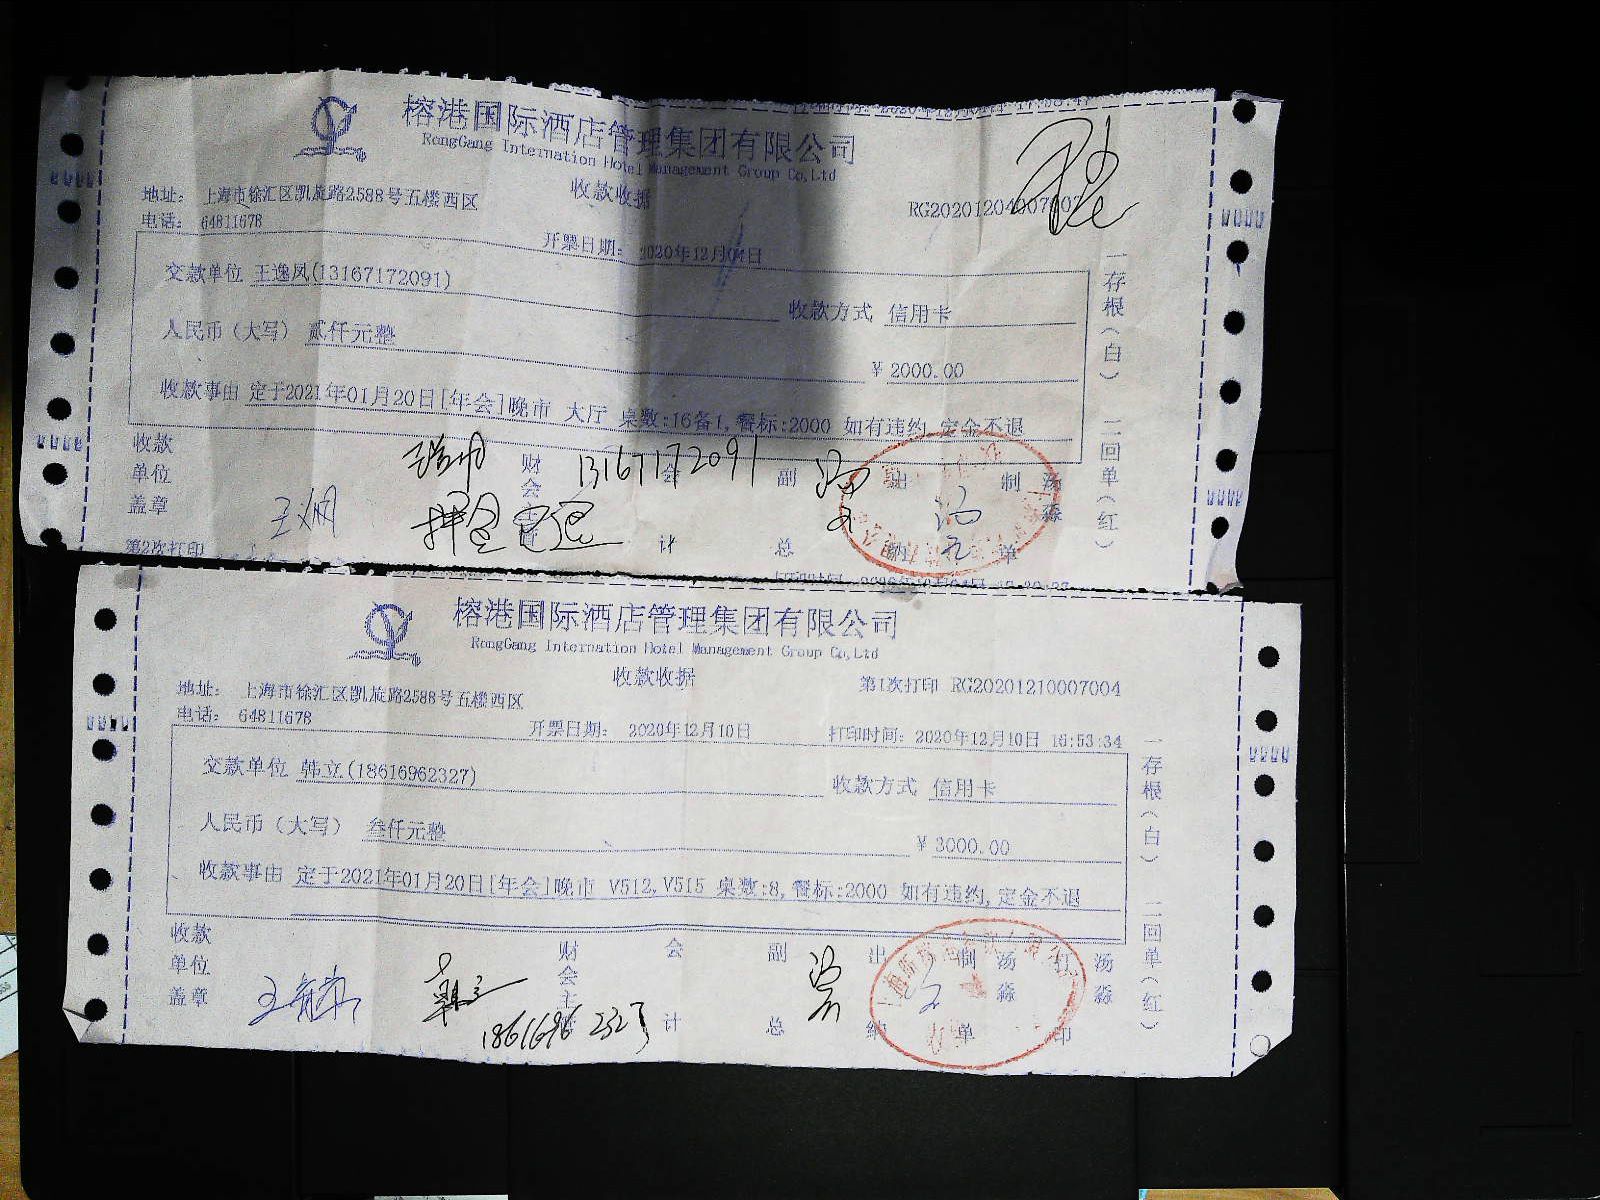 榕港国际酒店管理集团有限公司
RongGang Internation Hotel Management Group Co,Ltd
收款收据
地址： 上海市徐汇区凯旋路2588号五楼西区
RG20201204007002
电话： 64811678
开票日期： 2020年12月04日
交款单位 王逸凤(13167172091)
收款方式 信用卡
人民币（大写） 贰仟元整
￥ 2000.00
收款事由 定于2021年01月20日[年会]晚市 大厅 桌数:16备1,餐标:2000 如有违约,定金不退
收款单位盖章
财会主管
13167172091
会计
副总
出纳
制单
汤淼
押金已退
第2次打印
存根（白） 二回单（红）
榕港国际酒店管理集团有限公司
RongGang Internation Hotel Management Group Co,Ltd
收款收据
地址： 上海市徐汇区凯旋路2588号五楼西区
第1次打印 RG20201210007004
电话： 64811678
开票日期： 2020年12月10日
打印时间：2020年12月10日 16:53:34
交款单位 韩立(18616962327)
收款方式 信用卡
人民币（大写） 叁仟元整
￥ 3000.00
收款事由 定于2021年01月20日[年会]晚市 V512,V515 桌数:8,餐标:2000 如有违约,定金不退
收款单位盖章
韩立
财会主管
18616962327
会计
副总
出纳
制单
汤淼
打印
汤淼
一存根（白） 二回单（红）